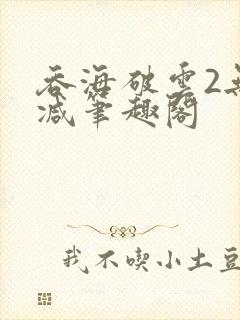 吞海破云2无
减笔趣阁
我不喫小土豆